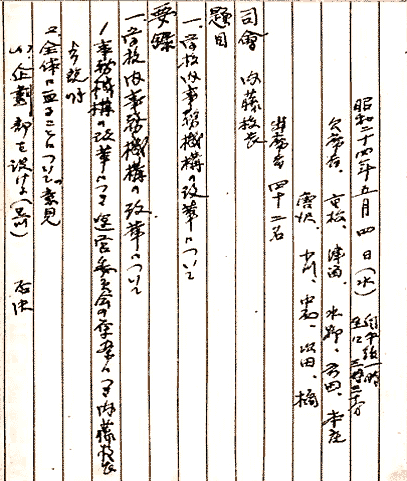 昭和二十四年五月四日（水） 自午後一時 至仝三時二十分
欠席者 重松、津田、水野、前田、本庄
小川、中島、以田、橋
出席者 四十二名
司會 内藤校長
題目
一、学校内事務機構の改革について
要録
一、学校内事務機構の改革について
1 事務機構の改革につき運営委員会の原案につき内藤校長より説明
2、全体に亘ることについての意見
い、企画部を設けよ（品川） 否決